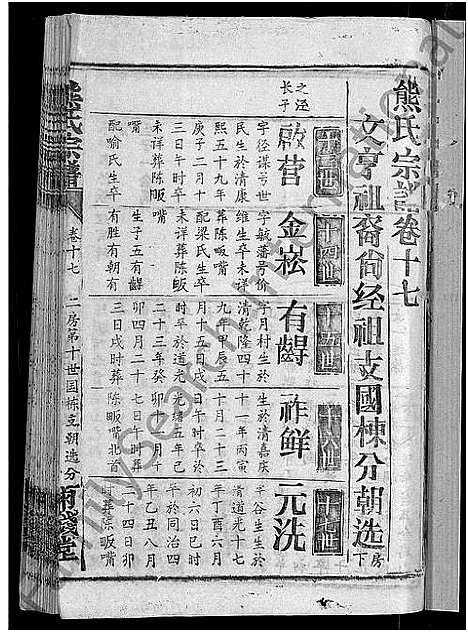 熊氏宗譜卷十七
文亨祖裔尙经祖支國棟分朝选房下
十四世
十五世
十六世
十七世
之泾长子
啟营
字径谋号世
民生於清康
熙五十九年
庚子二月十
三日午时卒
未详葬陈畈
嘴
配喻氏生卒
金崧
字毓藩号价
维生卒未详
葬陈畈嘴
配梁氏生卒
未详葬陈畈
生子五有龉
有胜有朝有
有龉
字月村生於
清乾隆四十
九年甲辰五
月十五日戌
时卒於道光
二十三年癸
卯四月二十
三日戌时葬
祚鲜
生於清嘉庆
十一年丙寅
十月二十三
日午时卒於
光绪五年己
卯十一月十
七日午时葬
陈畈嘴北首
元洗
字谷生生於
清道光十七
年丁酉六月
初六日巳时
卒於同治四
年乙丑八月
二十四日卯
时葬陈畈嘴
熊氏宗譜
卷十七
二房第十世国栋支朝选分